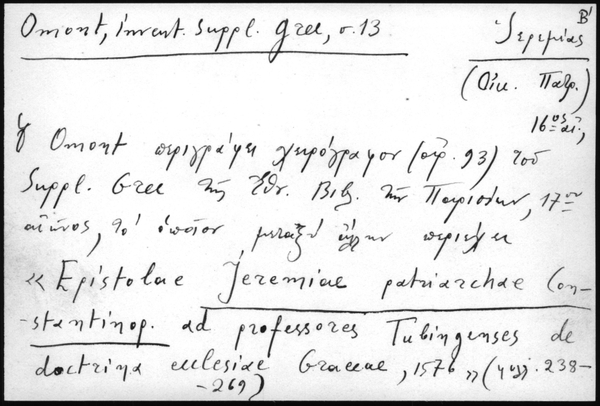 Omont, invent. Suppl. Grec, σ. 13
Ἱερεμίας Β'
(Οἰκ. Πατρ.)
16ος αἰ.
Ὁ Omont περιγράφει χειρόγραφον (ἀρ. 93) τοῦ
Suppl. Grec τῆς Ἐθν. Βιβ. τῶν Παρισίων, 17ου
αἰῶνος, τὸ ὁποῖον μεταξὺ ἄλλων περιέχει
« Epistolae Jeremiae patriarchae Con-
-stantinop. ad professores Tubingenses de
doctrina ecclesiae Graecae, 1576 » (φύλλ. 238-
-269)